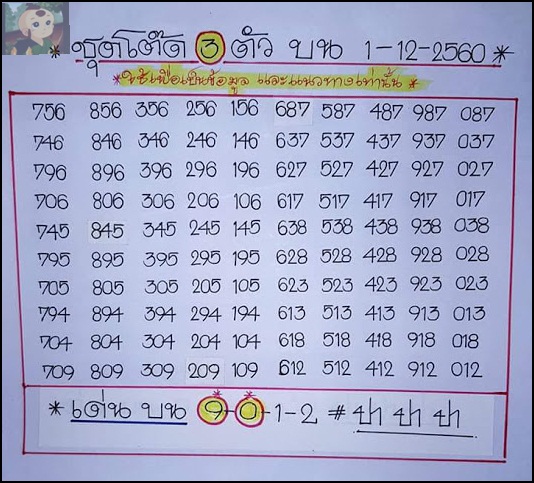 * ชุดโต๊ด 3 ตัว บน 1-12-2560 *
*ใช้เพื่อเป็นข้อมูล และแนวทางเท่านั้น *
756 856 356 256 156 687 587 487 987 087
746 846 346 246 146 637 537 437 937 037
796 896 396 296 196 627 527 427 927 027
706 806 306 206 106 617 517 417 917 017
745 845 345 245 145 638 538 438 938 038
795 895 395 295 195 628 528 428 928 028
705 805 305 205 105 623 523 423 923 023
794 894 394 294 194 613 513 413 913 013
704 804 304 204 104 618 518 418 918 018
709 809 309 209 109 612 512 412 912 012
* เด่น บน 9-0-1-2 # ปา ปา ปา